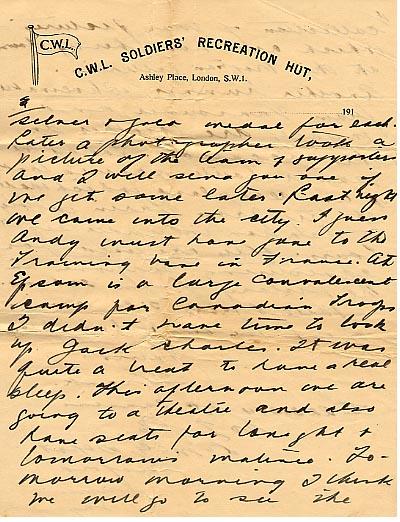 C.W.L.
C.W.L. SOLDIERS' RECREATION HUT,
Ashley Place, London, S.W.1.
191
silver & gold medal for each.
Later a photographer took a
picture of the team & supporters
and I will send you one if
we get some later. Last night
we came into the city. I guess
Andy must have gone to the
Training base in France. At
Epsom is a large convalescent
camp for Canadian Troops
I didn't have time to look
up Jack Charles. It was
quite a treat to have a real
sleep. This afternoon we are
going to a theatre and also
have seats for tonight &
tomorrows matinee. To-
morrow morning I think
we will go to see the